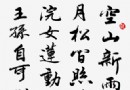 空山新雨
月松間照
浣女蓮動
王孫自可